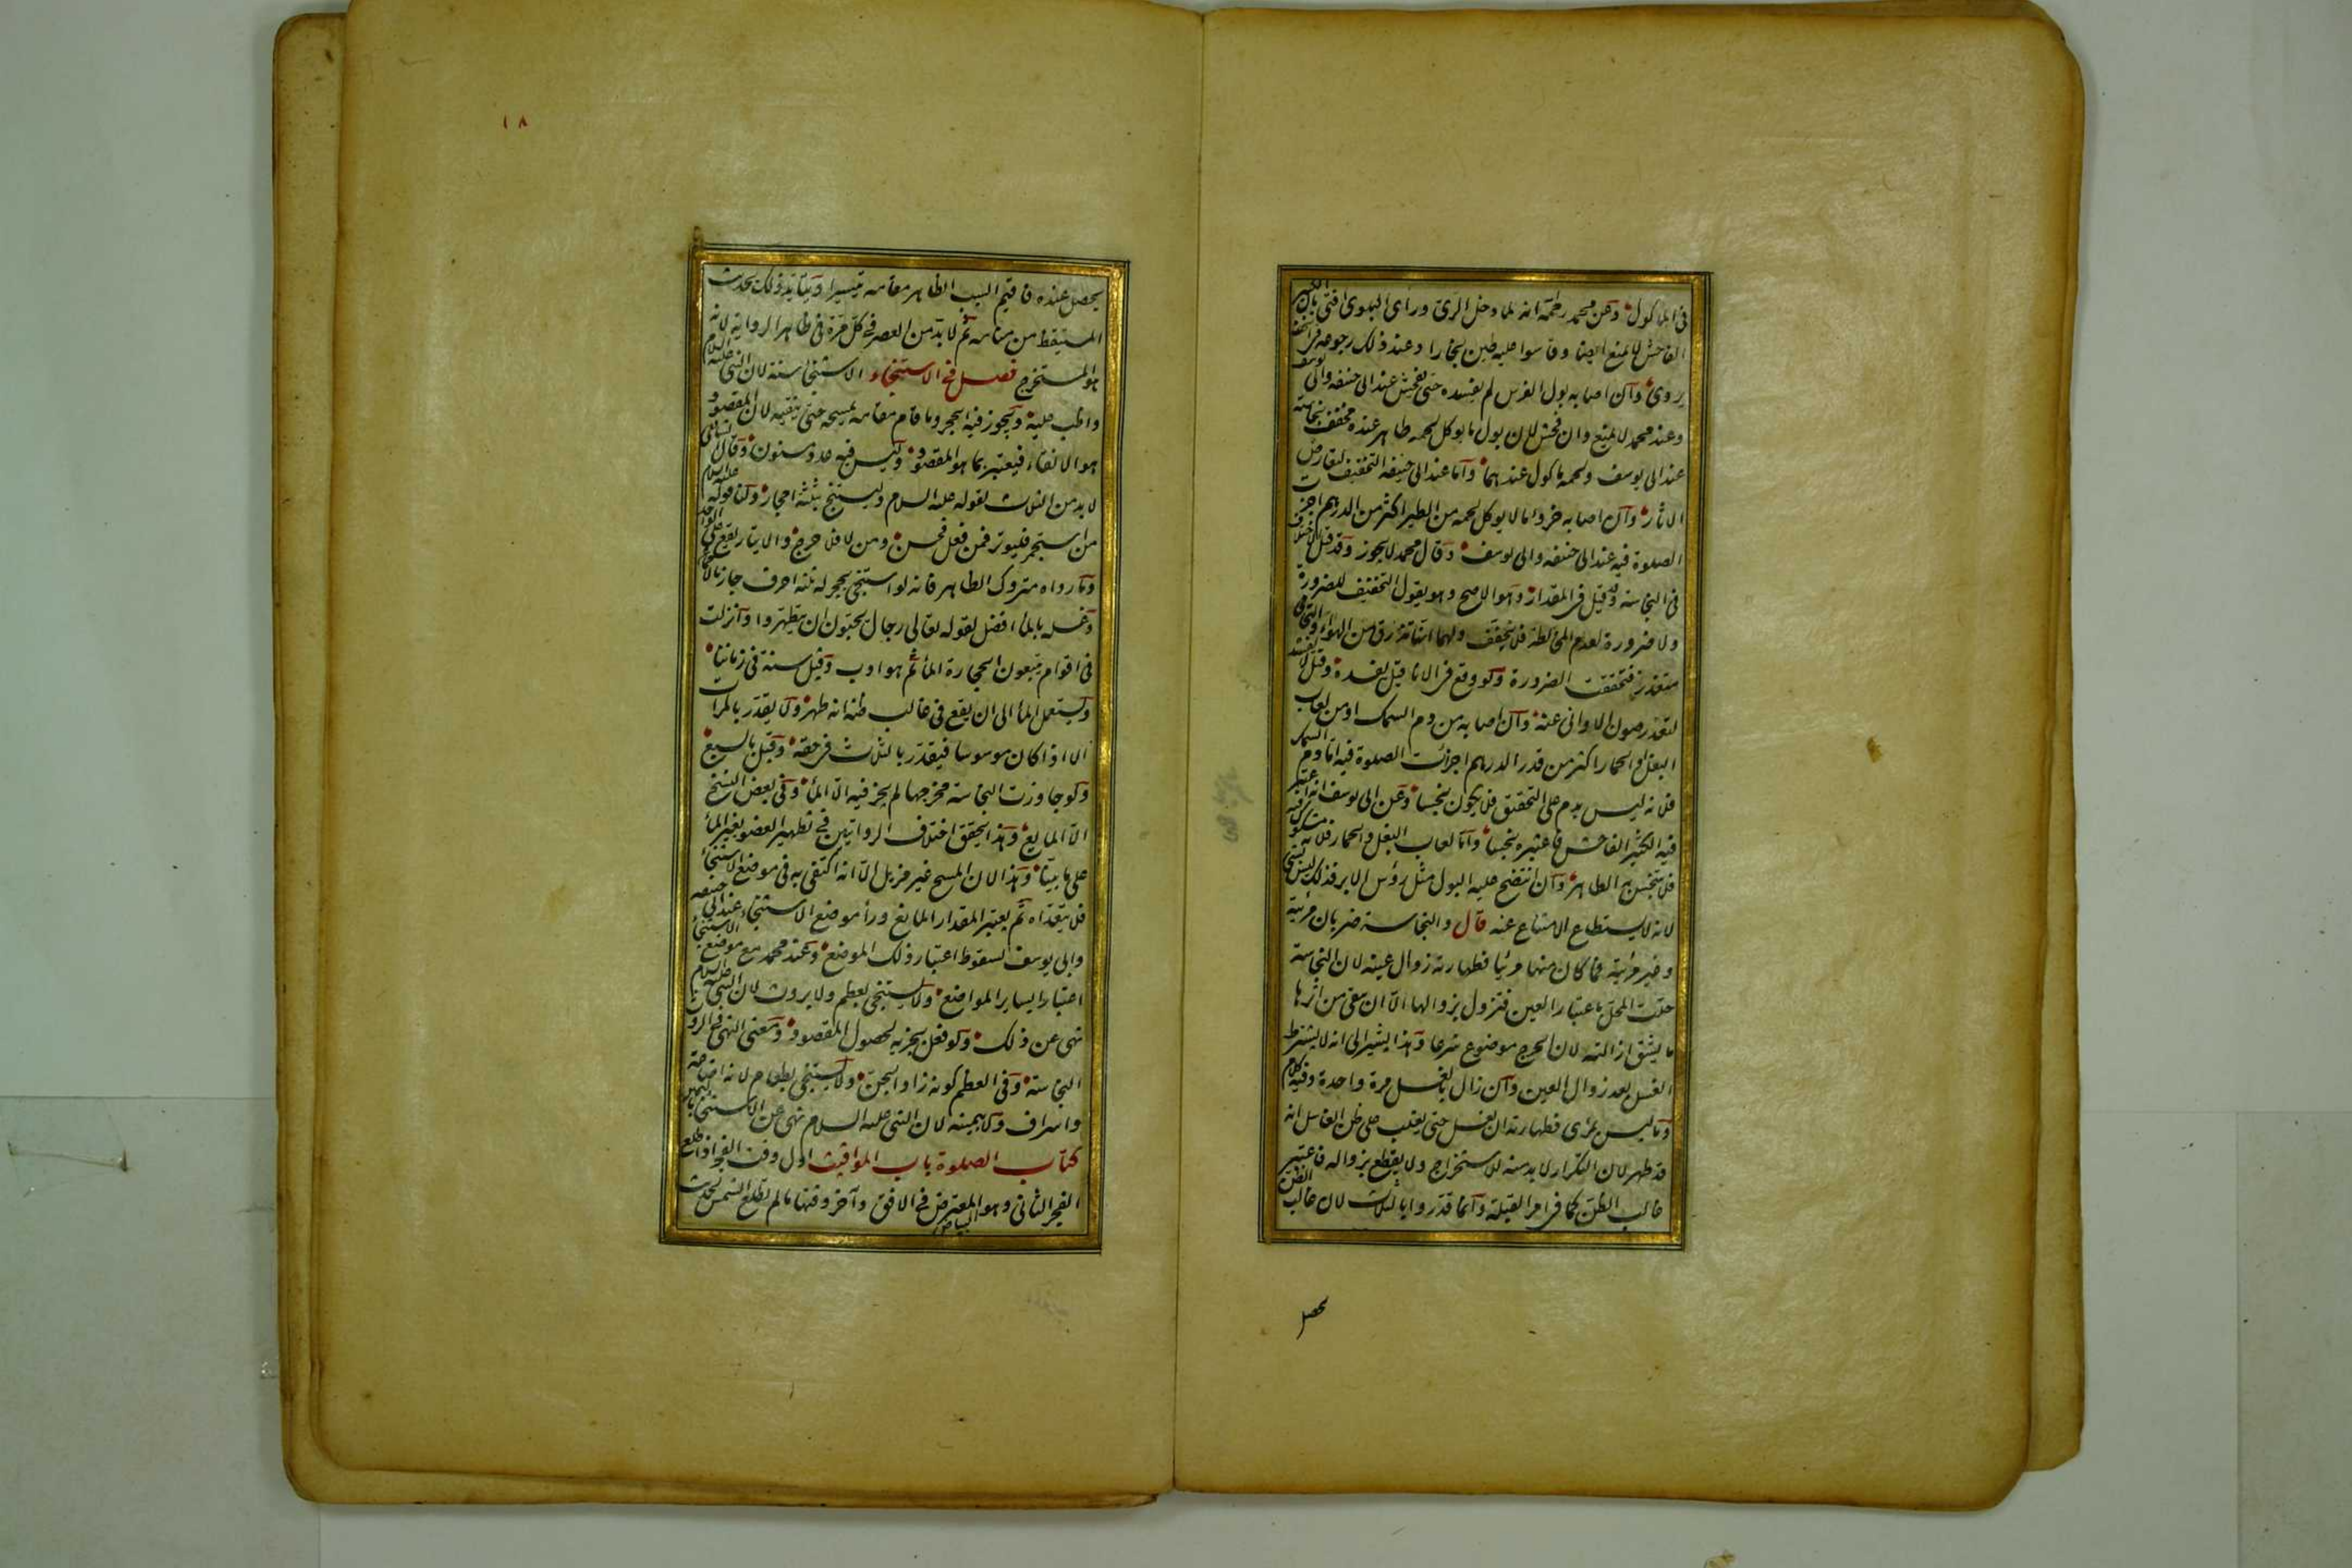 فى المأكول وعن محمد رحمه انه لما دخل الرى وراى البلوى افتى بان الكثير
الفاحش لا يمنع ايضا وقاسوا عليه طين بخارا وعند ذلك رجوعه فى الخف
يروى وان اصابه بول الفرس لم يفسده حتى يفحش عند ابى حنيفه وابى يوسف
وعند محمد لا يمنع وان فحش لان بول ما يوكل لحمه طاهر عنده مخفف نجاسته
عند ابى يوسف ولحمه ماكول عندهما واما عند ابى حنيفه التخفيف لتعارض
الاثار وان اصابه خرو ما لا يوكل لحمه من الطير اكثر من الدرهم اجزت
الصلوة فيه عند ابى حنيفه وابى يوسف وقال محمد لا يجوز وقد قيل الاختلاف
فى النجاسة وقد قيل فى المقدار وهو الاصح وهو يقول التخفيف للضرورة
ولا ضرورة لعدم المخالطة فلا يخفف ولهما انها تذرق من الهواء والتحامى
متعذر فتحققت الضرورة ولو وقع فى الانا قيل يفسده وقيل لا يفسد
لتعذر صون الاوانى عنه وان اصابه من دم السمك او من لعاب
البغل والحمار اكثر من قدر الدرهم اجزات الصلوة فيه اما دم السمك
فلانه ليس بدم على التحقيق فلا يكون نجسا وعن ابى يوسف انه اعتبر
فيه الكثير الفاحش فاعتبره نجسا واما لعاب البغل والحمار فلانه مشكوك فيه
فلا يتنجس به الطاهر وان انتضح عليه البول مثل رؤس الابر فذلك ليس بشى
لانه لا يستطاع الامتناع عنه قال والنجاسة ضربان مرئية
وغير مرئية فما كان منها مرئيا فطهارته زوال عينه لان النجاسة
حلت المحل باعتبار العين فتزول بزوالها الا ان يبقى من اثرها
ما يشق ازالته لان الحرج موضوع شرعا وهذا يشير الى انه لا يشترط
الغسل بعد زوال العين وان زال بالغسل مرة واحدة وفيه كلام
وما ليس بمرئى فطهارته ان يغسل حتى يغلب على ظن الغاسل انه
قد طهر لان التكرار لا بد منه للاستخراج ولا يقطع بزواله فاعتبر
غالب الظن كما فى امر القبلة وانما قدروا بالثلاث لان غالب الظن
يحصل
١٨
يحصل عنده فاقيم السبب الظاهر مقامه تيسيرا ويتايد ذلك بحديث
المستيقظ من منامه ثم لا بد من العصر فى كل مرة فى ظاهر الرواية لانه
هو المستخرج فصل فى الاستنجاء الاستنجا سنة لان النبى عليه السلام
واظب عليه ويجوز فيه الحجر وما قام مقامه يمسحه حتى ينقيه لان المقصود
هو الانقاء فيعتبر بما هو المقصود وليس فيه عدد مسنون وقال الشافعى
لا بد من الثلاث لقوله عليه السلام وليستنج بثلثة احجار ولنا قوله عليه السلام
من استجمر فليوتر فمن فعل فحسن ومن لا فلا حرج والايتار يقع على الواحد
وما رواه متروك الظاهر فانه لو استنجى بحجر له ثلثة احرف جاز بالاجماع
وغسله بالما افضل لقوله تعالى رجال يحبون ان يتطهروا وانزلت
فى اقوام يتبعون الحجارة الماء ثم هو ادب وقيل سنة فى زماننا
ويستعمل الماء الى ان يقع فى غالب ظنه انه طهر ولا يقدر بالمرات
الا اذا كان موسوسا فيقدر بالثلاث فى حقه وقيل بالسبع
ولو جاوزت النجاسة مخرجها لم يجز فيه الا الماء وفى بعض النسخ
الا المايع وهذا يحقق اختلاف الروايتين فى تطهير العضو بغير الماء
على ما بينا وهذا لان المسح غير مزيل الا انه اكتفى به فى موضع الاستنجاء
فلا يتعداه ثم يعتبر المقدار المانع وراء موضع الاستنجاء عند ابى حنيفه
وابى يوسف لسقوط اعتبار ذلك الموضع وعند محمد مع موضع الاستنجاء
اعتبارا بسائر المواضع ولا يستنجى بعظم ولا بروث لان النبى عليه السلام
نهى عن ذلك ولو فعل يجزيه لحصول المقصود ومعنى النهى فى الروث
النجاسة وفى العظم كونه زاد الجن ولا يستنجى بطعام لانه اضاعة
واسراف ولا بيمينه لان النبى عليه السلام نهى عن الاستنجا باليمين
كتاب الصلوة باب المواقيت اول وقت الفجر اذا طلع
الفجر الثانى وهو البياض المعترض فى الافق وآخر وقتها ما لم تطلع الشمس لحديث